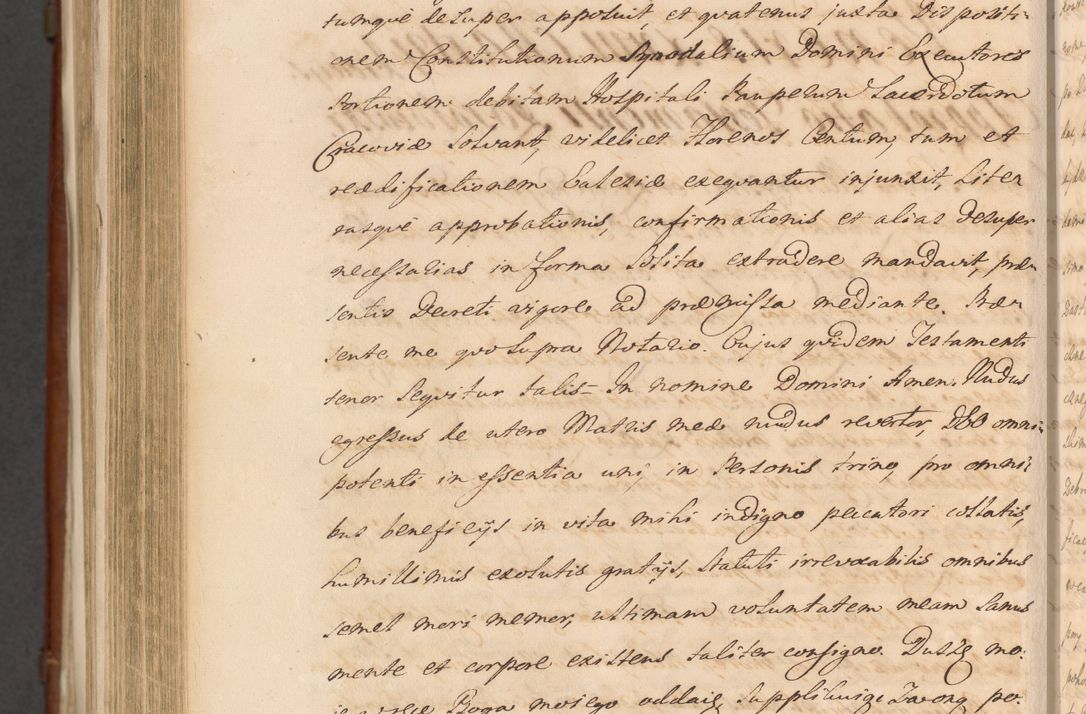 tumqve desuper apposuit, et qvatenus juxta Dispositi-
onem Constitutionum Synodalium Domini Executores
Portionem debitam Hospitali Pauperum Sacerdotum
Cracoviæ Solvant, videlicet Florenos Centum, tum et
reædificationem Ecclesiæ exeqvantur injunxit, Liter
rasqve approbationis, confirmationis et alias desuper
necessarias in forma Solita extradere mandavit, præ-
sentis Decreti vigore ad præmissa mediante. Præ-
sente me quo Supra Notario. Cujus qvidem Testamenti
tenor Seqvitur talis - In nomine Domini Amen. Nudus
egressus de utero Matris meæ nudus revertor, DEO omni-
potenti in essentia uni, in Personis trino, pro omni-
bus beneficijs in vita mihi indigno peccatori collatis,
humillimis exolutis gratijs, Statuti irrevocabilis omnibus
semel mori memor, ultimam voluntatem meam Sanus
mente et corpore existens taliter consigno. Duszę mo-
Boga moiego oddaię, Supplikuiąc po-